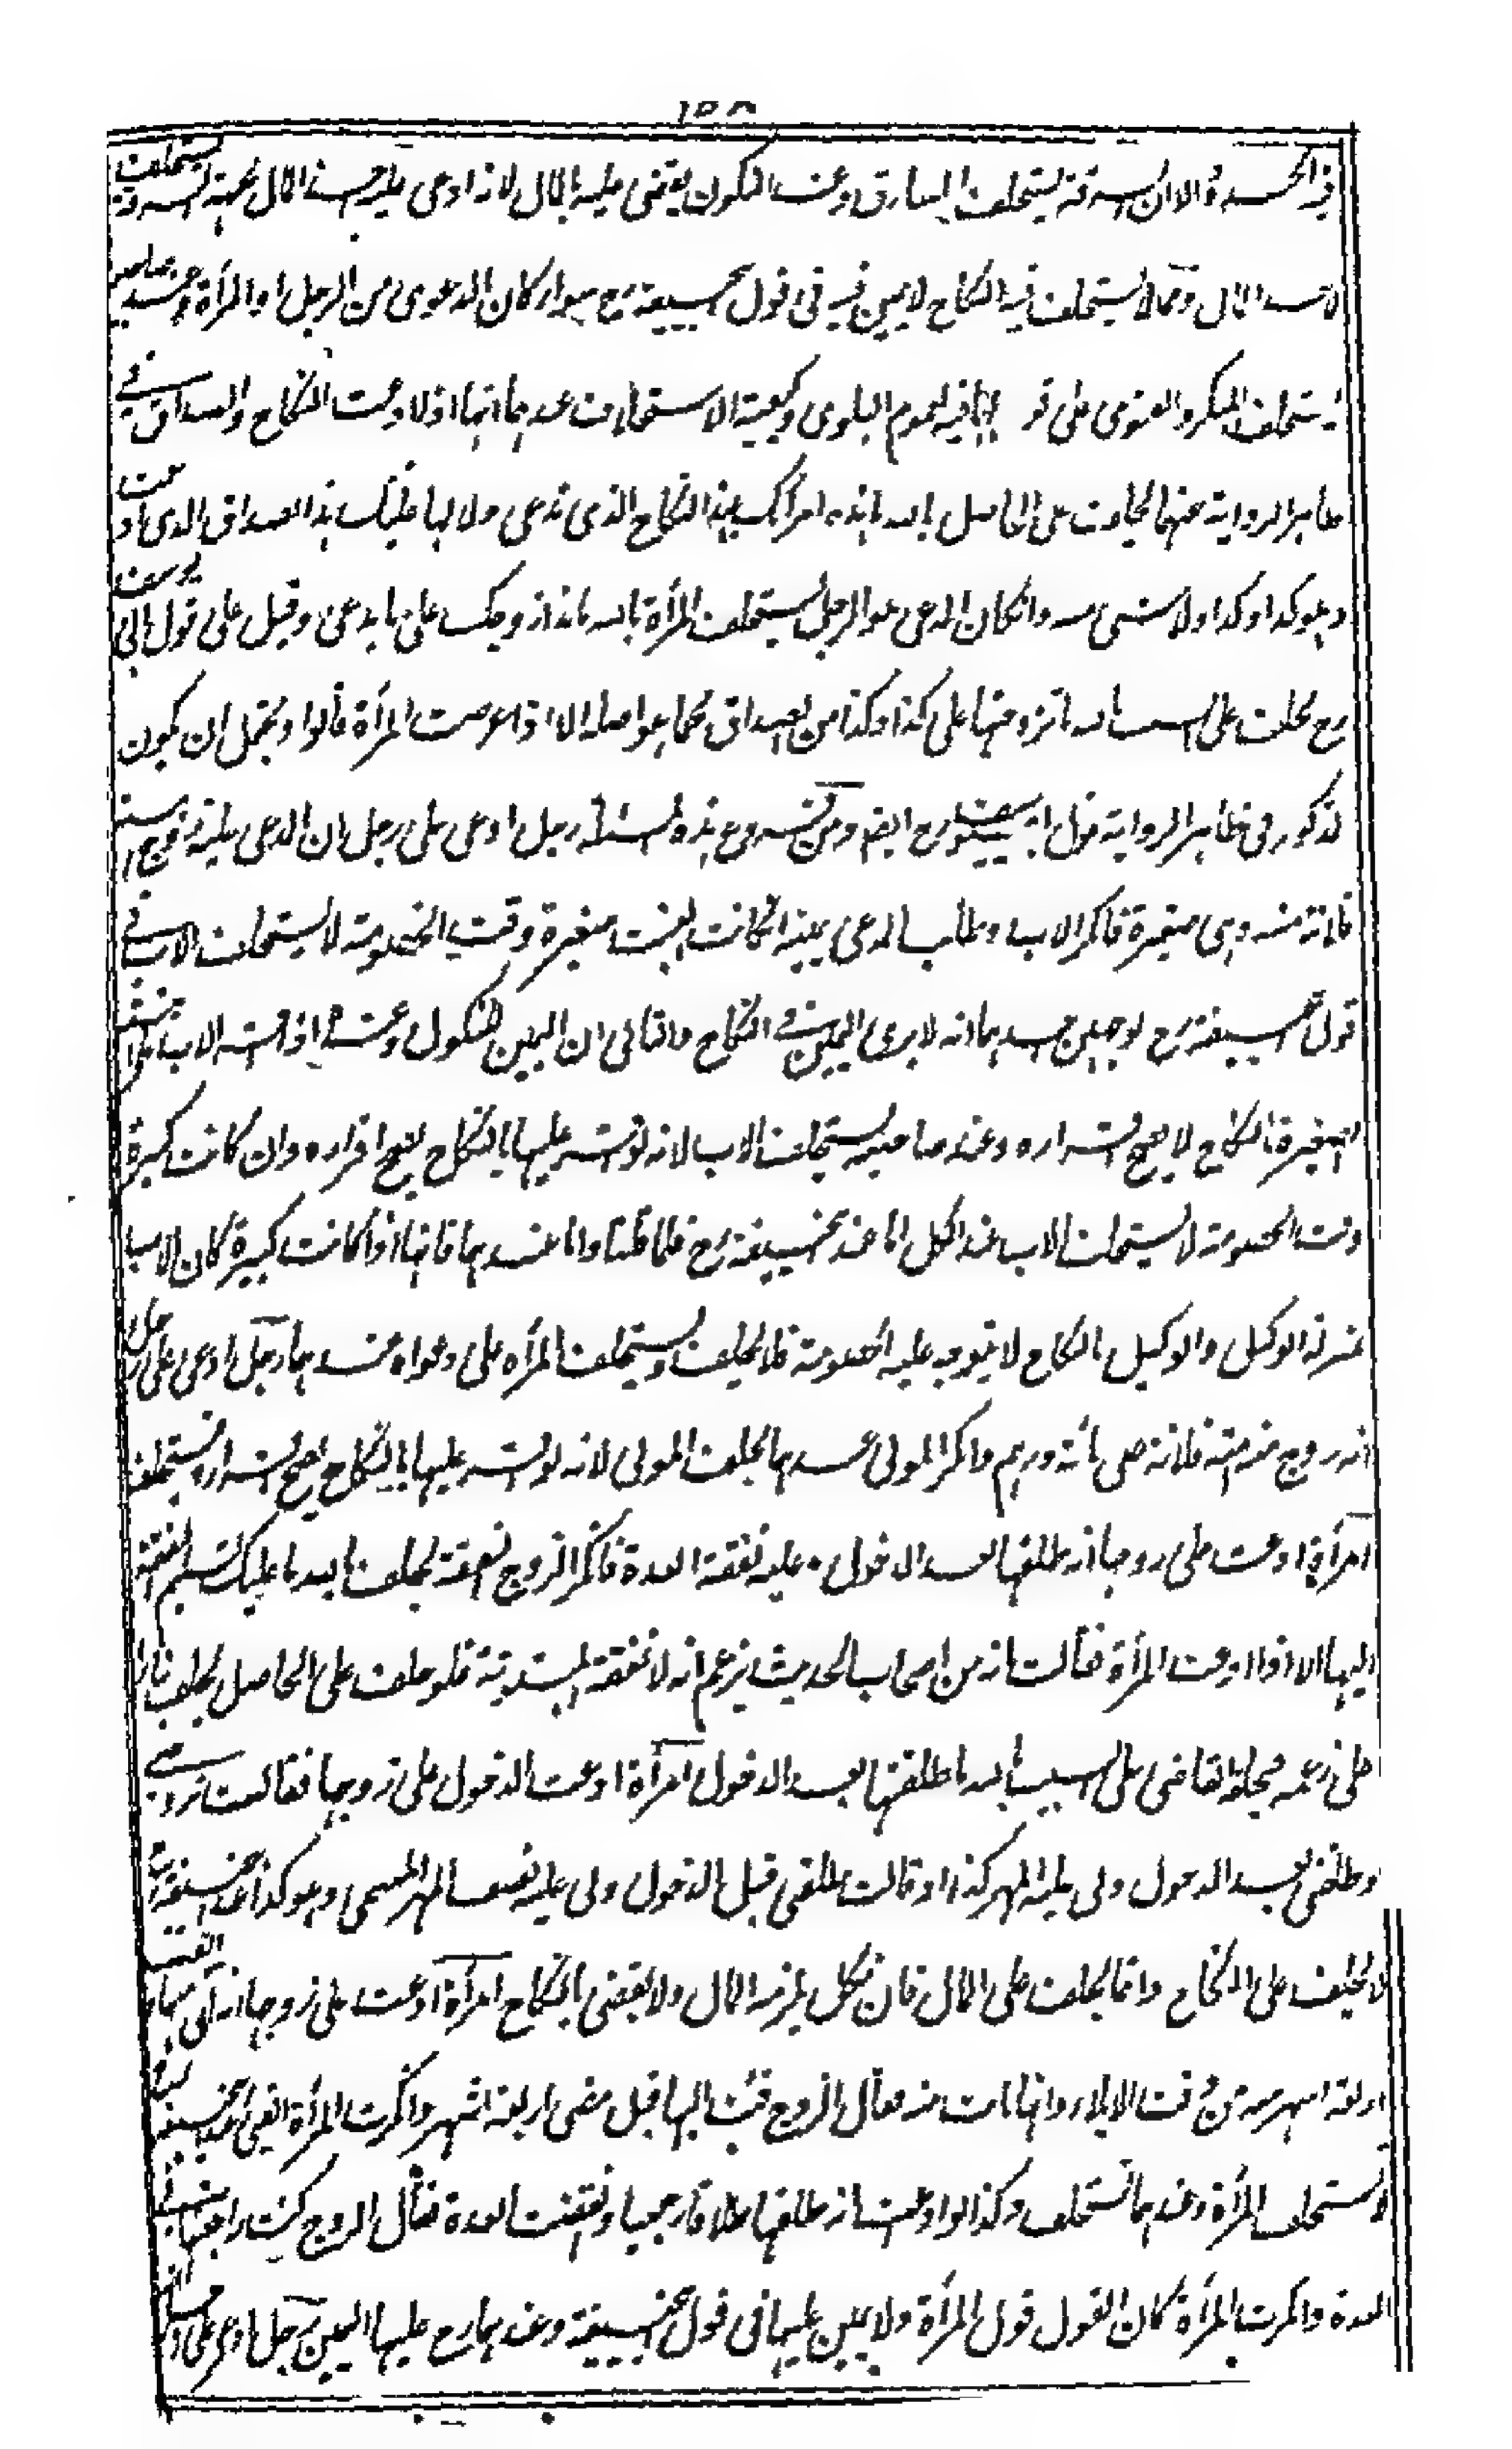 في الحدود الا ان في السرقة يستحلف السارق وعند النكول يقضى عليه بالمال لانه ادعى عليه اخذ المال بجهة السرقة فيستحلف
لاخذ المال ومما لا يستحلف فيه النكاح لا يمين فيه في قول ابيحنيفة رح سواء كان الدعوى من الرجل او المرأة وعند صاحبيه
يستحلف المنكر والفتوى على قولهما فيه لعموم البلوى وكيفية الاستحلاف عندهما انها اذا ادعت النكاح والصداق في
ظاهر الرواية عنهما يحلف على الحاصل بالله ما هذه امرأتك بهذا النكاح الذي تدعى ولا لها عليك هذا الصداق الذي ادعت
وهو كذا وكذا ولا شئ منه وان كان المدعى هو الرجل يستحلف المرأة بالله ما هذا زوجك على ما يدعى وقيل على قول ابي يوسف
رح يحلف على السبب بالله ما تزوجتها على كذا وكذا من الصداق كما هو اصله الا اذا عرضت المرأة قالوا ويحتمل ان يكون
المذكور في ظاهر الرواية قول ابي يوسف رح ايضا ومن فروع هذه المسئلة رجل ادعى على رجل ان المدعى عليه زوج ابنته
فلانة منه وهى صغيرة فانكر الاب وطلب المدعى يمينه ان كانت البنت صغيرة وقت الخصومة لا يستحلف الاب في
قول ابيحنيفة رح لوجهين احدهما انه لا يرى اليمين في النكاح والثاني ان اليمين للنكول وعنده اذا اقر الاب على ابنته
الصغيرة بالنكاح لا يصح اقراره وعند صاحبيه يستحلف الاب لانه لو اقر عليها بالنكاح يصح اقراره وان كانت كبيرة
وقت الخصومة لا يستحلف الاب عند الكل اما عند ابيحنيفة رح فلما قلنا واما عندهما فانها اذا كانت كبيرة كان الاب
بمنزلة الوكيل والوكيل بالنكاح لا يتوجه عليه الخصومة فلا يحلف ويستحلف المرأة على دعواه عندهما رجل ادعى على رجل
انه زوج منه امته فلانة على مائة درهم وانكر المولى عندهما يحلف المولى لانه لو اقر عليها بالنكاح يصح اقراره فيستحلف
امرأة ادعت على زوجها انه طلقها بعد الدخول وعليه نفقة العدة فانكر الزوج النفقة يحلف بالله ما عليك تسليم النفقة
اليها الا اذا ادعت المرأة فقالت انه من اصحاب الحديث يزعم انه لا نفقة للمبتوتة فلو حلف على الحاصل يحلف بناء
على زعمه فيحلفه القاضى على السبب بالله ما طلقتها بعد الدخول امرأة ادعت الدخول على زوجها فقالت تزوجني
وطلقني بعد الدخول ولى عليه المهر كذا او قالت طلقني قبل الدخول ولى عليه نصف المهر المسمى وهو كذا عند ابيحنيفة رح
لا يحلف على النكاح وانما يحلف على المال فان نكل يلزمه المال ولا يقضى بالنكاح امرأة ادعت على زوجها انه آلى منها وانقضت
اربعة اشهر من وقت الايلاء وانها بانت منه فقال الزوج فئت اليها قبل مضى اربعة اشهر وانكرت المرأة الفئ عند ابيحنيفة
لا يستحلف المرأة وعندهما تستحلف وكذا لو ادعت انه طلقها طلاقا رجعيا وانقضت العدة فقال الزوج كنت راجعتها في
العدة وانكرت المرأة كان القول قول المرأة ولا يمين عليها في قول ابيحنيفة وعندهما رح عليها اليمين رجل ادعى على